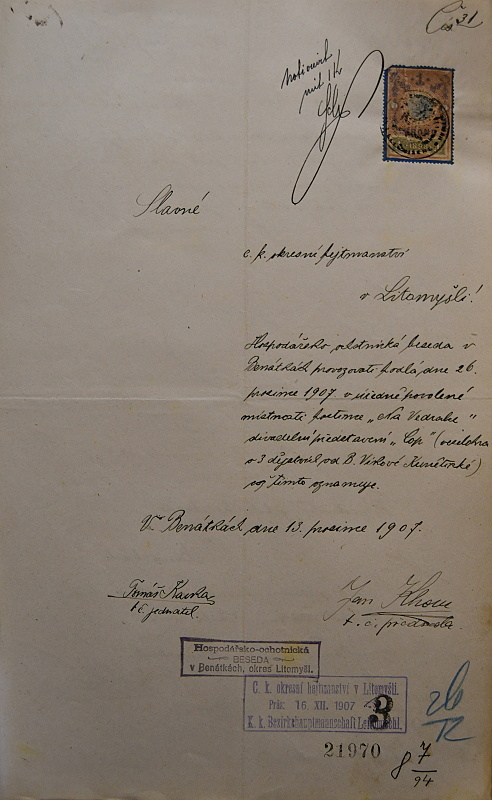 Čís 31
mit 1K
Slavné
c. k. okresní hejtmanství
v Litomyšli!
Hospodářsko ochotnická beseda v
Benátkách provozovati hodlá dne 26.
prosince 1907 v úředně povolené
místnosti hostince „Na Vedralce"
divadelní představení „Čáp" (veselohra
o 3 dějstvích od B. Vikové Kunětické)
což tímto oznamuje.
V Benátkách dne 13. prosince 1907.
Tomáš Kavka
t. č. jednatel.
Jan
t. č. předseda.
Hospodářsko-ochotnická
BESEDA
v Benátkách, okres Litomyšl.
C. k. okresní hejtmanství v Litomyšli.
Präs: 16. XII. 1907
K. k. Bezirkshauptmannschaft Leitomischl.
3
21970
26/12
8 7/94